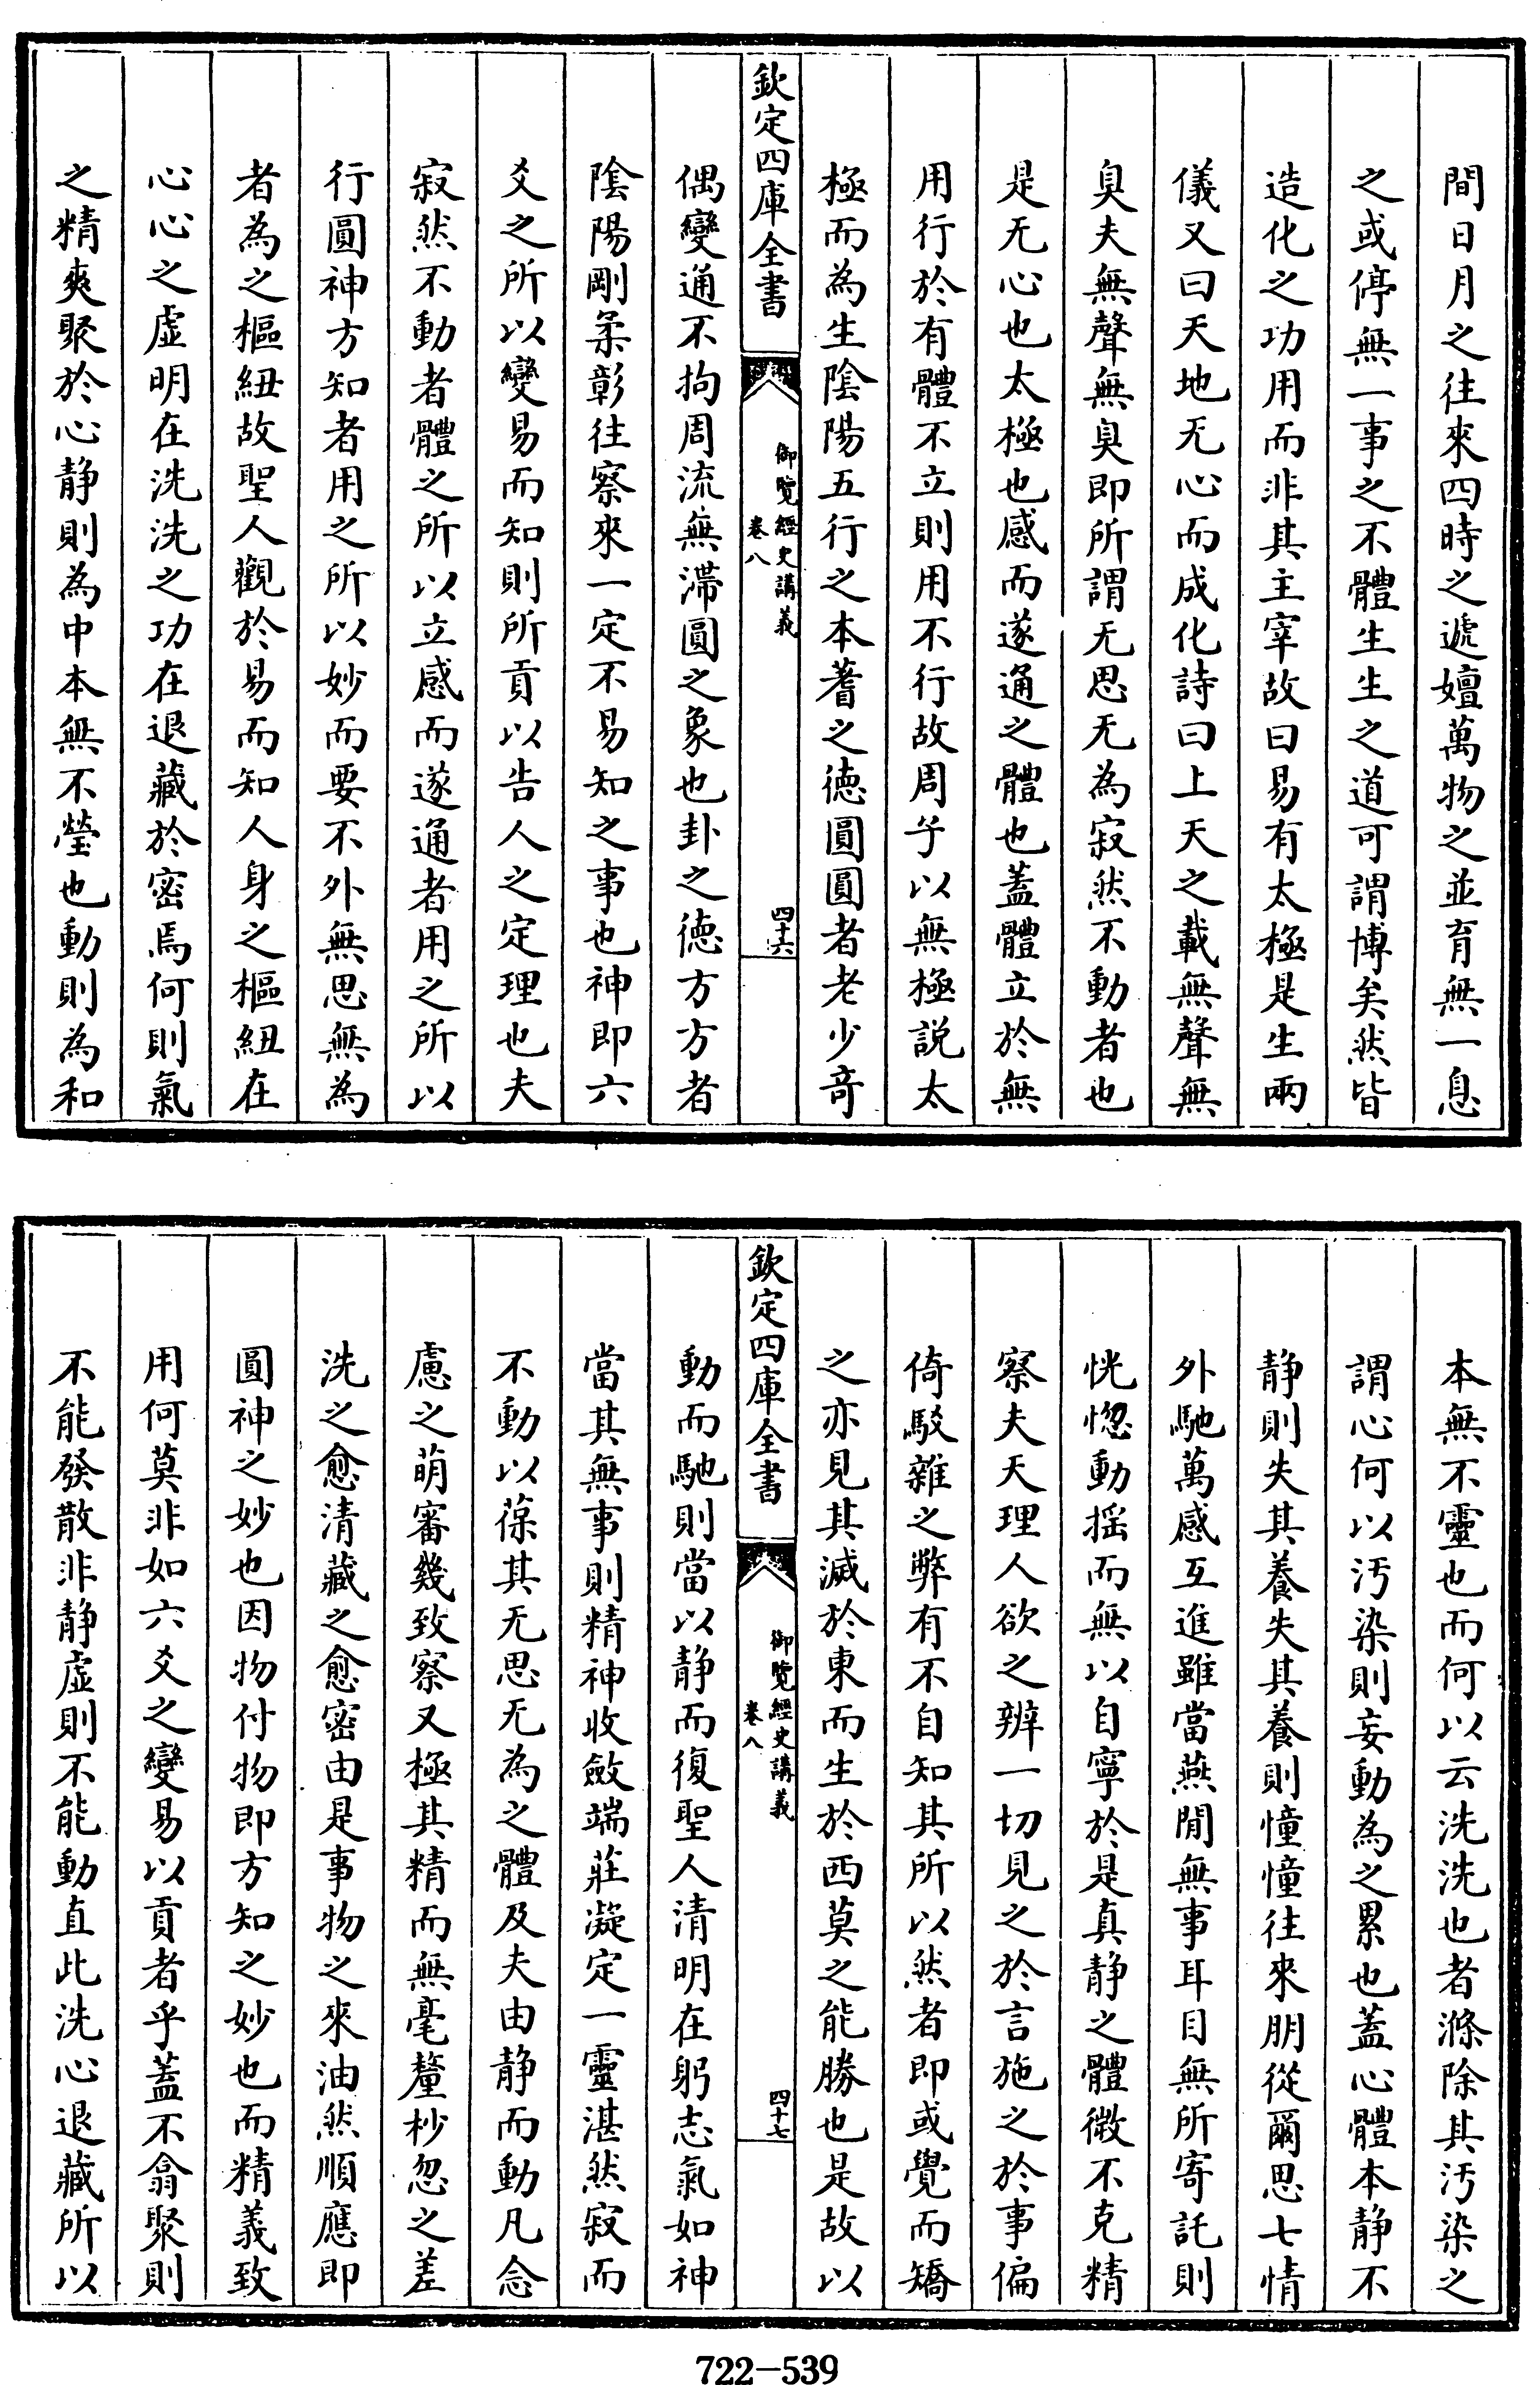 間日月之往來四時之遞嬗萬物之並育無一息
之或停無一事之不體生生之道可謂博矣然皆
造化之功用而非其主宰故曰易有太極是生兩
儀又曰天地无心而成化詩曰上天之載無聲無
臭夫無聲無臭即所謂无思无為寂然不動者也
是无心也太極也感而遂通之體也蓋體立於無
用行於有體不立則用不行故周子以無極說太
極而為生陰陽五行之本蓍之德圓圓者老少竒
欽定四庫全書
御覽經史講義
卷八
四十六
偶變通不拘周流無滯圓之象也卦之德方方者
陰陽剛柔彰往察來一定不易知之事也神即六
爻之所以變易而知則所貢以告人之定理也夫
寂然不動者體之所以立感而遂通者用之所以
行圓神方知者用之所以妙而要不外無思無為
者為之樞紐故聖人觀於易而知人身之樞紐在
心心之虛明在洗洗之功在退藏於密焉何則氣
之精爽聚於心静則為中本無不瑩也動則為和
本無不靈也而何以云洗洗也者滌除其汚染之
謂心何以汚染則妄動為之累也蓋心體本静不
静則失其養失其養則憧憧往來朋從爾思七情
外馳萬感互進雖當燕閒無事耳目無所寄託則
恍惚動摇而無以自寧於是真静之體微不克精
察夫天理人欲之辨一切見之於言施之於事偏
倚駁雜之弊有不自知其所以然者即或覺而矯
之亦見其滅於東而生於西莫之能勝也是故以
欽定四庫全書
御覽經史講義
卷八
四十七
動而馳則當以静而復聖人清明在躬志氣如神
當其無事則精神收斂端莊凝定一靈湛然寂而
不動以葆其无思无為之體及夫由静而動凡念
慮之萌審幾致察又極其精而無毫釐杪忽之差
洗之愈清藏之愈密由是事物之來油然順應即
圓神之妙也因物付物即方知之妙也而精義致
用何莫非如六爻之變易以貢者乎蓋不翕聚則
不能發散非静虛則不能動直此洗心退藏所以
722-539